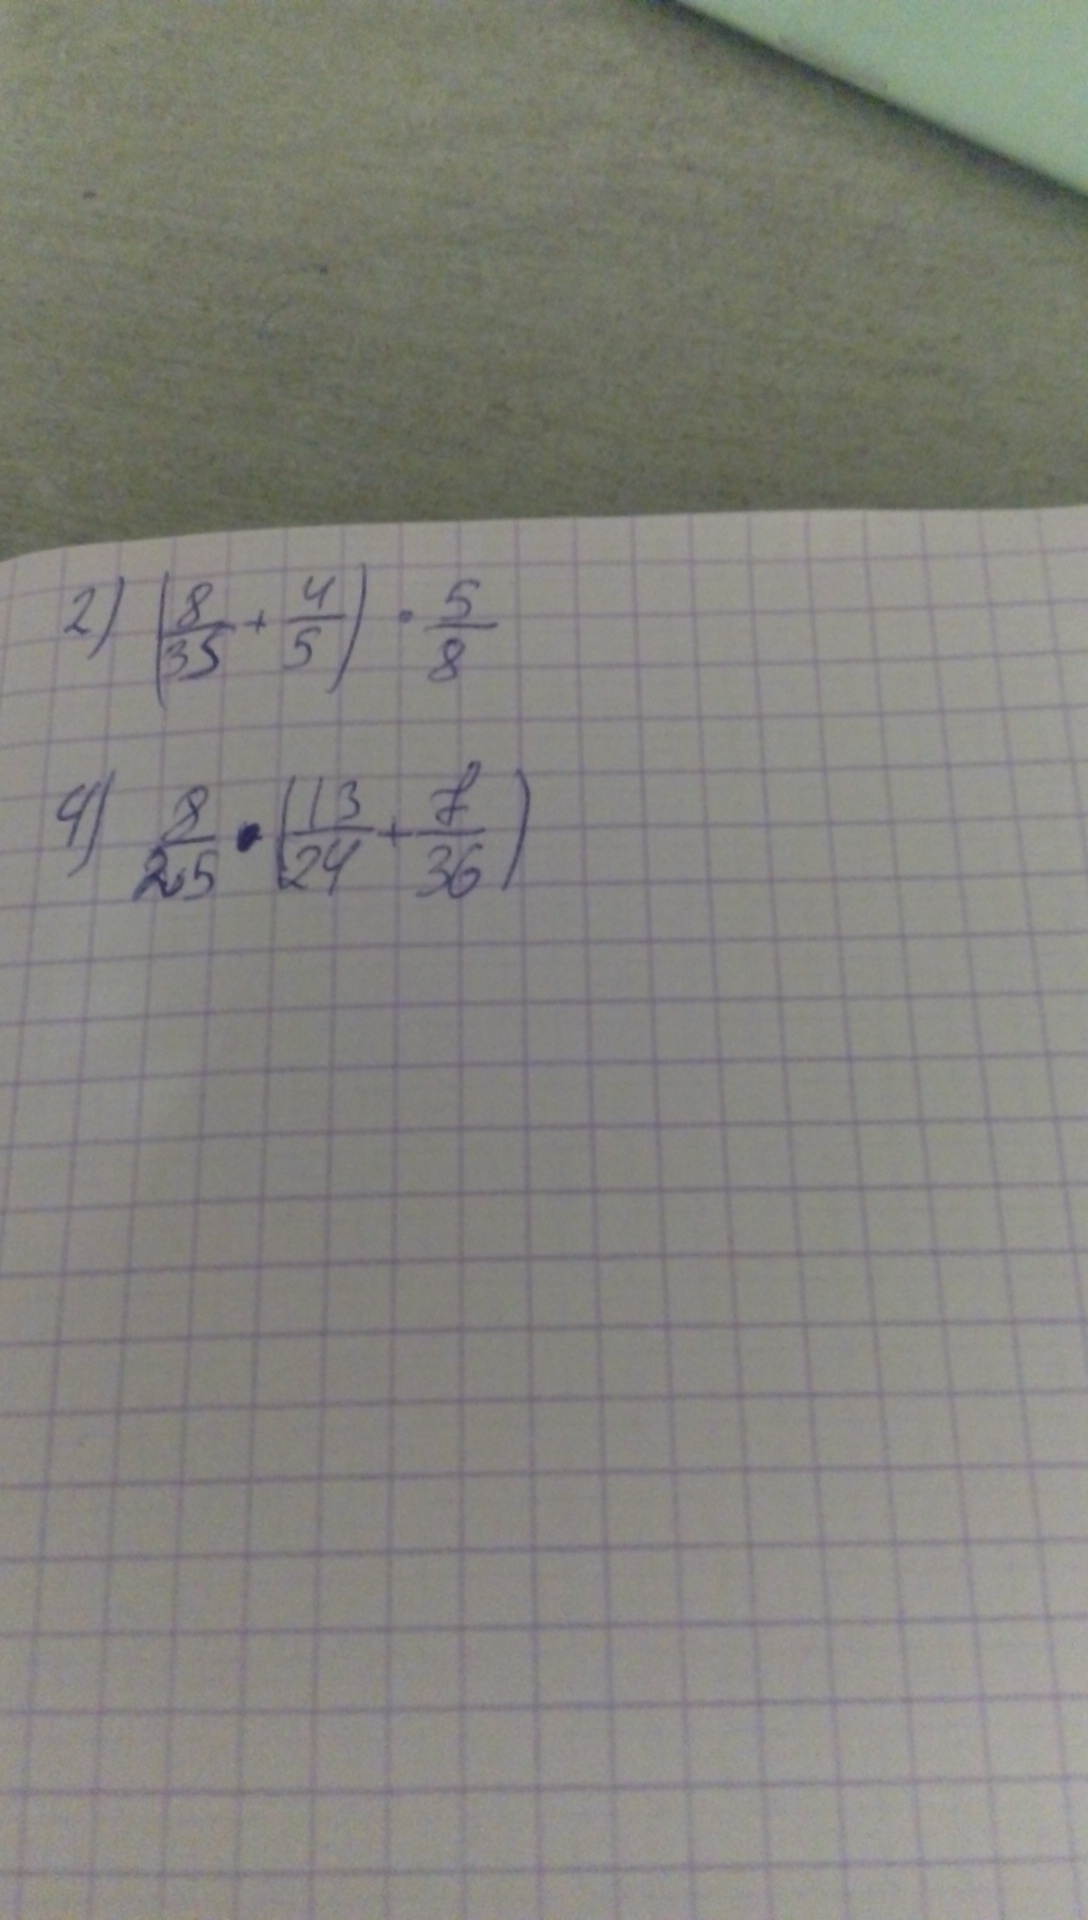 2) (8/35 + 4/5) · 5/8
4) 8/25 · (13/24 + 7/36)